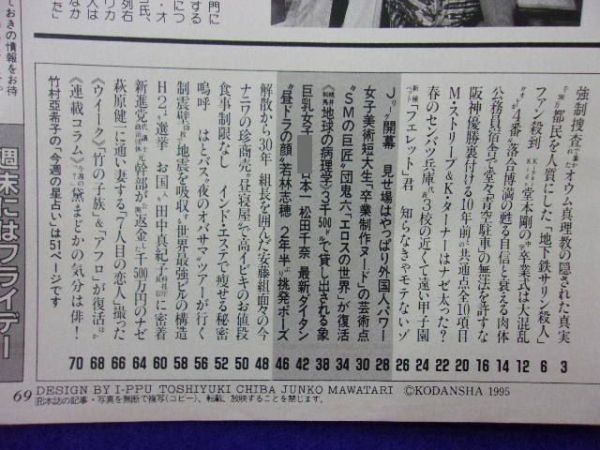 強制捜査でオウム真理教の隠された真実 3
都民を人質にした「地下鉄サリン殺人」 6
ファン殺到 堂本剛の中卒業式は大混乱 12
4番・落合博満の甦る自信と衰える肉体 14
公務員宿舎で堂々青空駐車の無法を許すな 16
阪神優勝裏付ける10年前との共通点全10項目 20
M・ストリープ&K・ターナーはナゼ太った? 22
春のセンバツ兵庫3校の近くて遠い甲子園 24
「フェレット」君 知らなきゃモテないゾ 26
Jリーグ開幕 見せ場はやっぱり外国人パワー 28
女子美術短大生「卒業制作ヌード」の芸術点 30
“SMの巨匠”団鬼六「エロスの世界」が復活 34
《地球の病理学》3千500で貸し出される象 38
巨乳女子 日本一 松田千奈 最新ダイタン 42
“昼ドラの顔”若林志穂 2年半ぶり挑発ポーズ 46
解散から30年 組長を囲んだ安藤組面々の今 48
ナニワの珍商売 昼寝屋で高イビキのお値段 50
食事制限なし インド・エステで痩せる秘密 52
嗚呼 はとバス“夜のオバサマ”ツアーが行く 56
制震壁が地震を吸収する世界最強ビルの構造 58
H2選挙 お国入り田中真紀子に密着 60
新進党幹部が返金した千500万円のナゼ 64
萩原健一に通い妻する「7人目の恋人」撮った 66
《ウイーク》「竹の子族」&「アフロ」が復活 68
《連載コラム》黛まどかの気分は俳! 70
竹村亜希子の「今週の星占い」は51ページです
週末にはフライデー
69
DESIGN BY I-PPU TOSHIYUKI CHIBA JUNKO MAWATARI ©KODANSHA 1995
本誌の記事・写真を無断で複写(コピー)、転載、放映することを禁じます。